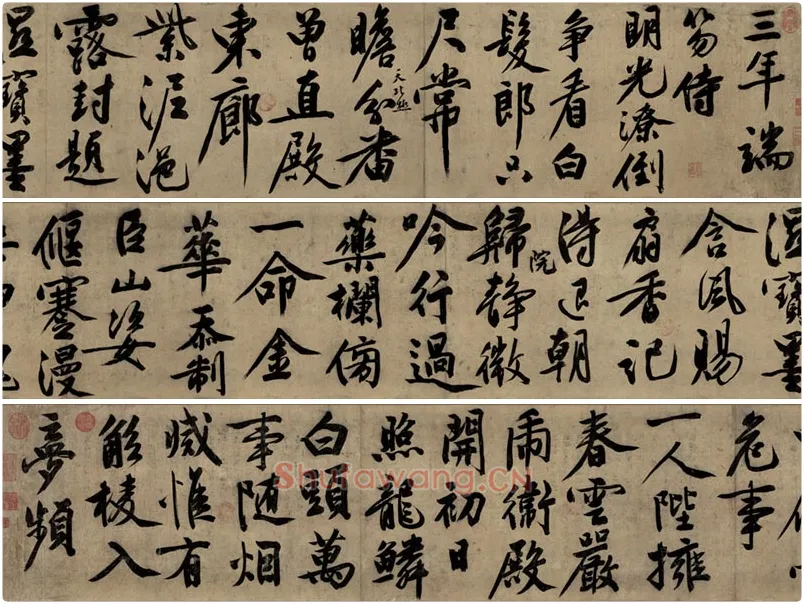 三年端
笏侍
明光潦倒
争看白
髪郎只
尺常
瞻分番
天北極
曽直殿
東廊
紫泥浥
露封題
湿寶墨
湿寶墨
含風賜
扇香記
得退朝
歸静微
院
吟行過
藥欄傍
一命金
華忝制
臣山姿
偃蹇漫
老事
一人陛擁
春雲嚴
雨衛殿
開初日
照龍鱗
白頭萬
事随烟
滅惟有
觚稜入
夢頻
Shufawang.CN